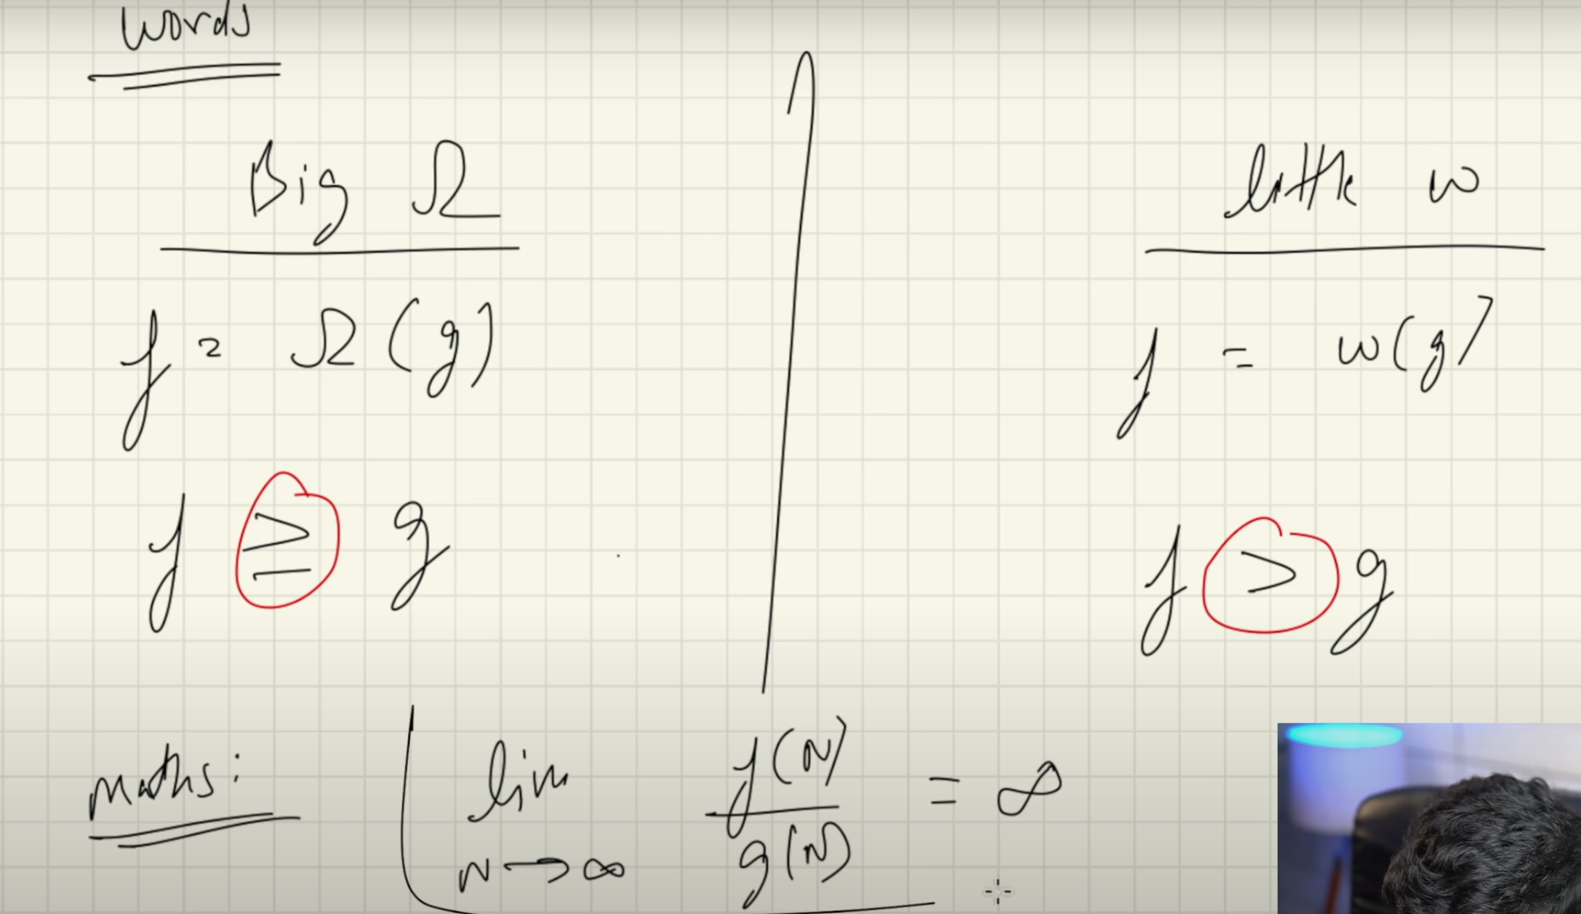 words
Big Ω
f = Ω(g)
f ≥ g
little ω
f = ω(g)
f > g
maths:
lim N→∞ f(N)/g(N) = ∞